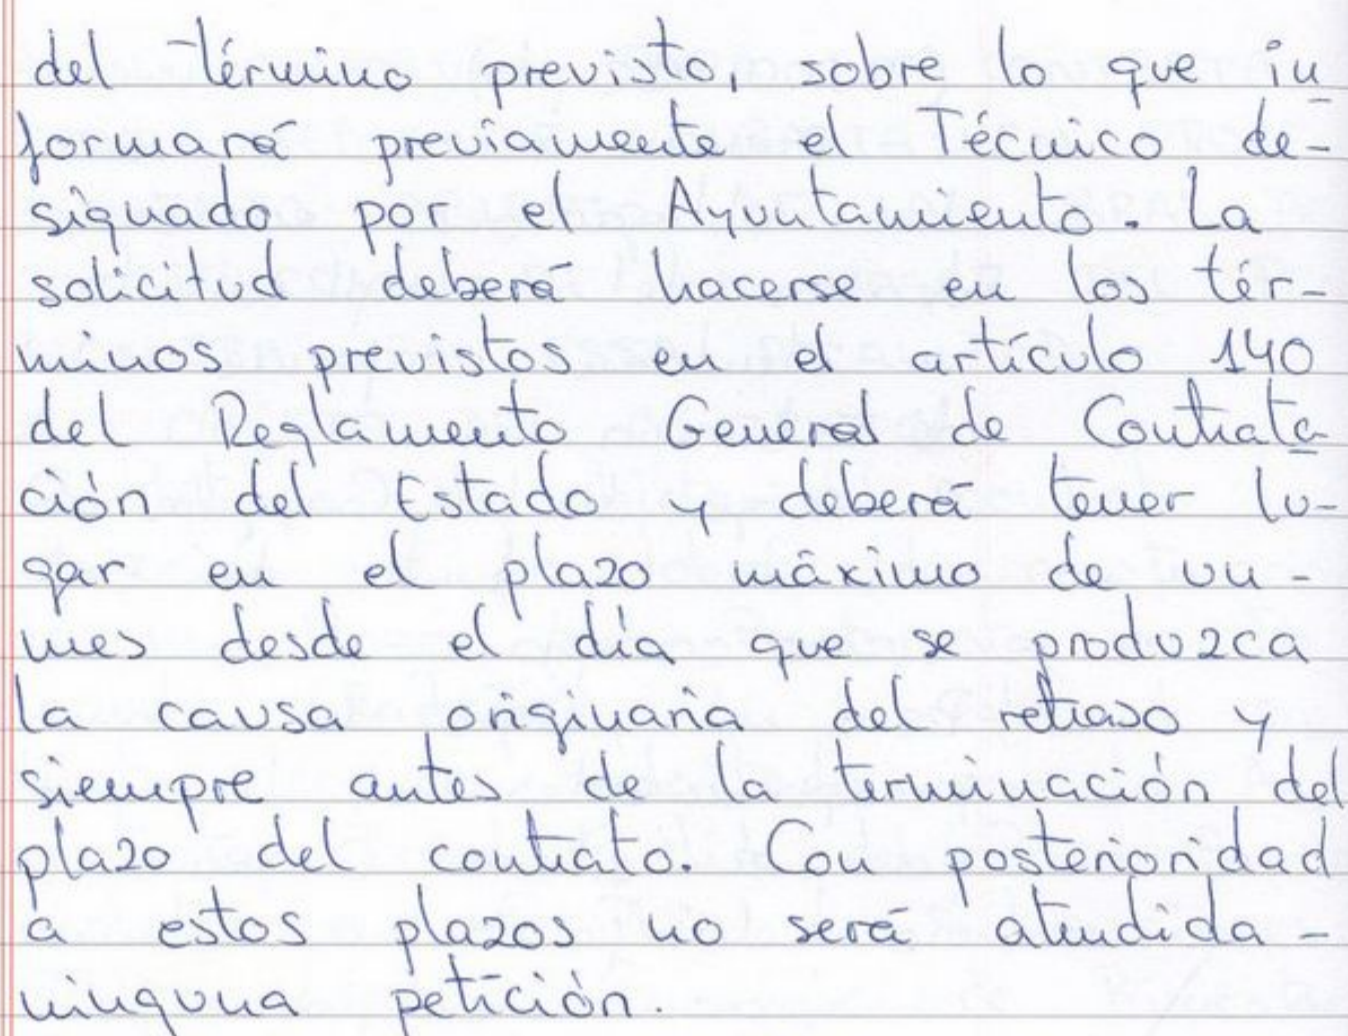 del término previsto, sobre lo que in
formará previamente el Técnico de-
signado por el Ayuntamiento. La
solicitud deberá hacerse en los tér-
minos previstos en el artículo 140
del Reglamento General de Contrata
ción del Estado y deberá tener lu-
gar en el plazo máximo de un -
mes desde el día que se produzca
la causa originaria del retraso y
siempre antes de la terminación del
plazo del contrato. Con posterioridad
a estos plazos no será atendida -
ninguna petición.